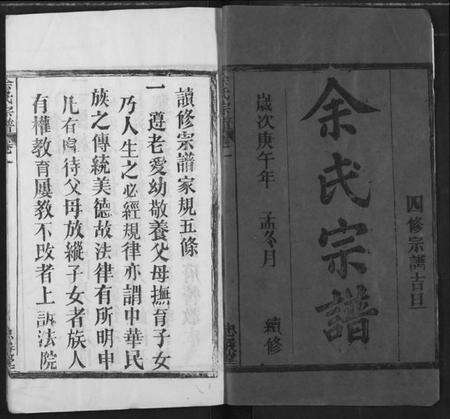 四修宗譜吉旦
余氏宗譜
歲次庚午年 孟冬月 續修
余氏宗譜 卷一
讀修宗譜家規五條
一 遵老愛幼敬養父母撫育子女
乃人生之必經規律亦謂中華民
族之傳統美德故法律有所明申
凡有虐待父母放縱子女者族人
有權教育屢教不改者上訴法院
余氏宗譜 卷一